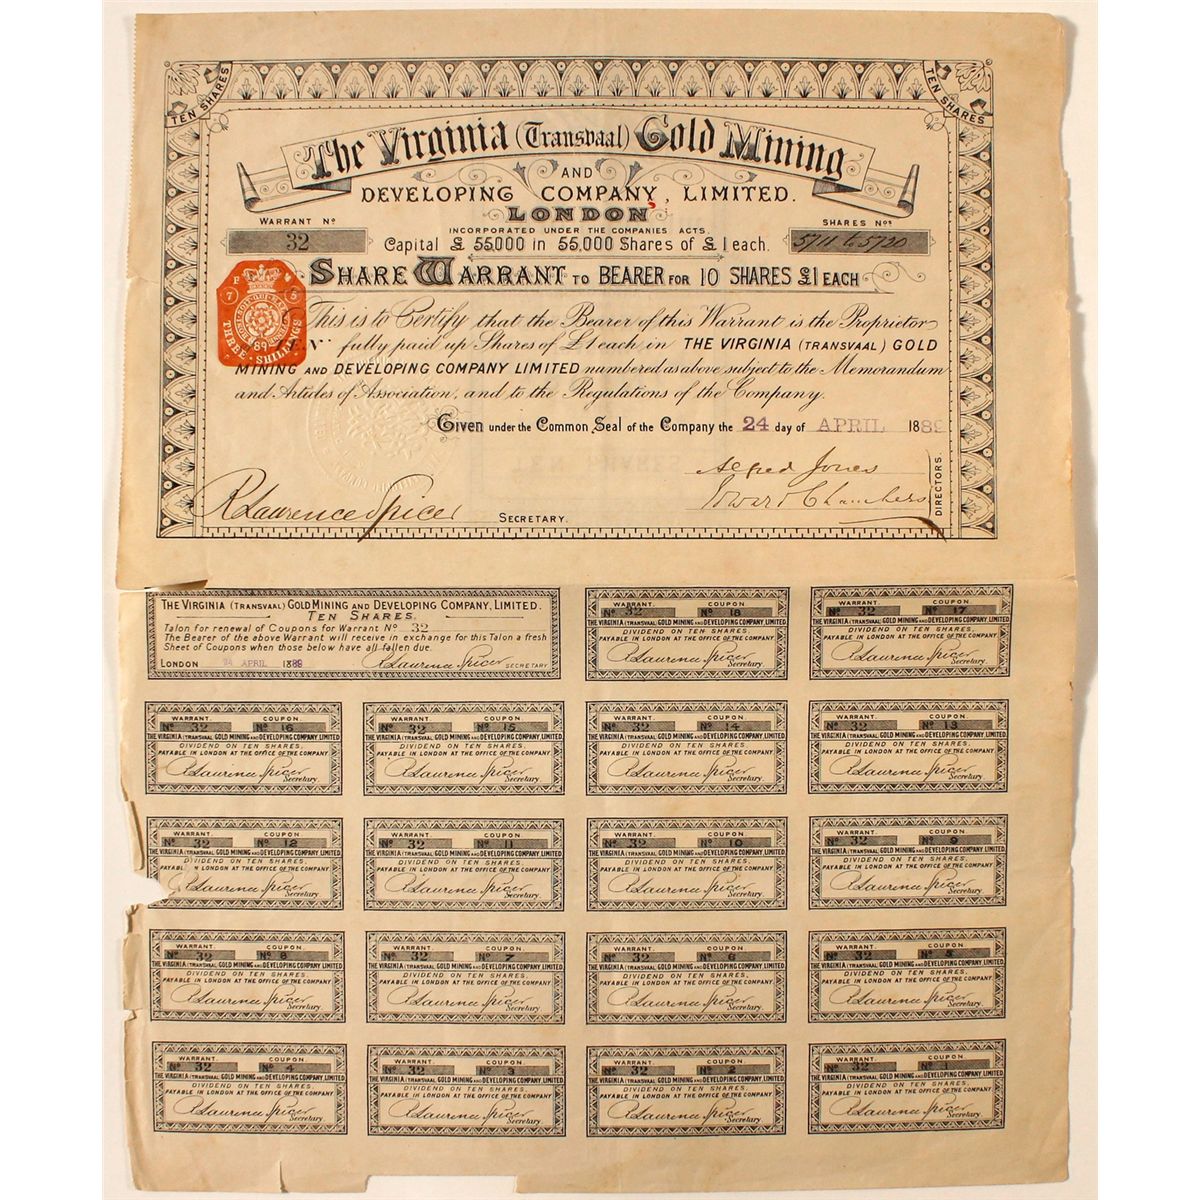 TEN SHARES
TEN SHARES
The Virginia (Transvaal) Gold Mining
AND
DEVELOPING COMPANY, LIMITED.
LONDON
INCORPORATED UNDER THE COMPANIES ACTS.
WARRANT No
32
SHARES Nos
5711 to 5720
Capital £ 55000 in 55,000 Shares of £1 each.
SHARE WARRANT TO BEARER FOR 10 SHARES £1 EACH
THREE SHILLINGS
89
This is to Certify that the Bearer of this Warrant is the Proprietor
TEN fully paid up Shares of £1 each in THE VIRGINIA (TRANSVAAL) GOLD
MINING AND DEVELOPING COMPANY LIMITED numbered as above subject to the Memorandum
and Articles of Association, and to the Regulations of the Company.
Given under the Common Seal of the Company the 24 day of APRIL 1889
Alfred Jones
Edward Chambers
DIRECTORS.
R Laurence Spicer SECRETARY.
THE VIRGINIA (TRANSVAAL) GOLD MINING AND DEVELOPING COMPANY, LIMITED.
TEN SHARES.
Talon for renewal of Coupons for Warrant No 32
The Bearer of the above Warrant will receive in exchange for this Talon a fresh
Sheet of Coupons when those below have all fallen due.
LONDON 24 APRIL 1889 R Laurence Spicer SECRETARY
WARRANT. COUPON
No 32 No 18
THE VIRGINIA (TRANSVAAL) GOLD MINING AND DEVELOPING COMPANY LIMITED
DIVIDEND ON TEN SHARES,
PAYABLE IN LONDON AT THE OFFICE OF THE COMPANY
R Laurence Spicer
Secretary.
WARRANT. COUPON
No 32 No 17
THE VIRGINIA (TRANSVAAL) GOLD MINING AND DEVELOPING COMPANY LIMITED
DIVIDEND ON TEN SHARES,
PAYABLE IN LONDON AT THE OFFICE OF THE COMPANY
R Laurence Spicer
Secretary.
WARRANT. COUPON.
No 32 No 16
THE VIRGINIA (TRANSVAAL) GOLD MINING AND DEVELOPING COMPANY LIMITED
DIVIDEND ON TEN SHARES,
PAYABLE IN LONDON AT THE OFFICE OF THE COMPANY
R Laurence Spicer
Secretary.
WARRANT. COUPON.
No 32 No 15
THE VIRGINIA (TRANSVAAL) GOLD MINING AND DEVELOPING COMPANY LIMITED
DIVIDEND ON TEN SHARES,
PAYABLE IN LONDON AT THE OFFICE OF THE COMPANY
R Laurence Spicer
Secretary.
WARRANT. COUPON.
No 32 No 14
THE VIRGINIA (TRANSVAAL) GOLD MINING AND DEVELOPING COMPANY LIMITED
DIVIDEND ON TEN SHARES,
PAYABLE IN LONDON AT THE OFFICE OF THE COMPANY
R Laurence Spicer
Secretary.
WARRANT. COUPON.
No 32 No 13
THE VIRGINIA (TRANSVAAL) GOLD MINING AND DEVELOPING COMPANY LIMITED
DIVIDEND ON TEN SHARES,
PAYABLE IN LONDON AT THE OFFICE OF THE COMPANY
R Laurence Spicer
Secretary.
WARRANT. COUPON.
No 32 No 12
THE VIRGINIA (TRANSVAAL) GOLD MINING AND DEVELOPING COMPANY LIMITED
DIVIDEND ON TEN SHARES,
PAYABLE IN LONDON AT THE OFFICE OF THE COMPANY
Laurence Spicer
Secretary.
WARRANT. COUPON.
No 32 No 11
THE VIRGINIA (TRANSVAAL) GOLD MINING AND DEVELOPING COMPANY LIMITED
DIVIDEND ON TEN SHARES,
PAYABLE IN LONDON AT THE OFFICE OF THE COMPANY
R Laurence Spicer
Secretary.
WARRANT. COUPON.
No 32 No 10
THE VIRGINIA (TRANSVAAL) GOLD MINING AND DEVELOPING COMPANY LIMITED
DIVIDEND ON TEN SHARES,
PAYABLE IN LONDON AT THE OFFICE OF THE COMPANY
R Laurence Spicer
Secretary.
WARRANT. COUPON.
No 32 No 9
THE VIRGINIA (TRANSVAAL) GOLD MINING AND DEVELOPING COMPANY LIMITED
DIVIDEND ON TEN SHARES,
PAYABLE IN LONDON AT THE OFFICE OF THE COMPANY
R Laurence Spicer
Secretary.
WARRANT. COUPON.
No 32 No 8
THE VIRGINIA (TRANSVAAL) GOLD MINING AND DEVELOPING COMPANY LIMITED
DIVIDEND ON TEN SHARES,
PAYABLE IN LONDON AT THE OFFICE OF THE COMPANY
R Laurence Spicer
Secretary.
WARRANT. COUPON.
No 32 No 7
THE VIRGINIA (TRANSVAAL) GOLD MINING AND DEVELOPING COMPANY LIMITED
DIVIDEND ON TEN SHARES,
PAYABLE IN LONDON AT THE OFFICE OF THE COMPANY
R Laurence Spicer
Secretary.
WARRANT. COUPON.
No 32 No 6
THE VIRGINIA (TRANSVAAL) GOLD MINING AND DEVELOPING COMPANY LIMITED
DIVIDEND ON TEN SHARES,
PAYABLE IN LONDON AT THE OFFICE OF THE COMPANY
R Laurence Spicer
Secretary.
WARRANT. COUPON.
No 32 No 5
THE VIRGINIA (TRANSVAAL) GOLD MINING AND DEVELOPING COMPANY LIMITED
DIVIDEND ON TEN SHARES,
PAYABLE IN LONDON AT THE OFFICE OF THE COMPANY
R Laurence Spicer
Secretary.
WARRANT. COUPON.
No 32 No 4
THE VIRGINIA (TRANSVAAL) GOLD MINING AND DEVELOPING COMPANY LIMITED
DIVIDEND ON TEN SHARES,
PAYABLE IN LONDON AT THE OFFICE OF THE COMPANY
R Laurence Spicer
Secretary.
WARRANT. COUPON.
No 32 No 3
THE VIRGINIA (TRANSVAAL) GOLD MINING AND DEVELOPING COMPANY LIMITED
DIVIDEND ON TEN SHARES,
PAYABLE IN LONDON AT THE OFFICE OF THE COMPANY
R Laurence Spicer
Secretary.
WARRANT. COUPON.
No 32 No 2
THE VIRGINIA (TRANSVAAL) GOLD MINING AND DEVELOPING COMPANY LIMITED
DIVIDEND ON TEN SHARES,
PAYABLE IN LONDON AT THE OFFICE OF THE COMPANY
R Laurence Spicer
Secretary.
WARRANT. COUPON.
No 32 No
THE VIRGINIA (TRANSVAAL) GOLD MINING AND DEVELOPING COMPANY LIMITED
DIVIDEND ON TEN SHARES,
PAYABLE IN LONDON AT THE OFFICE OF THE COMPANY
R Laurence Spicer
Secretary.